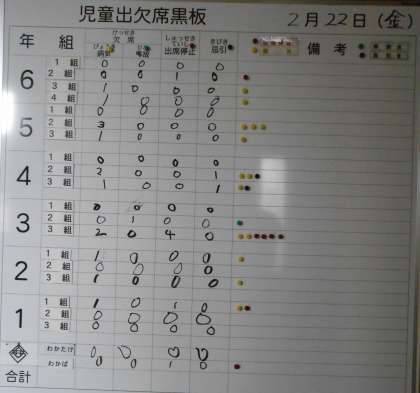 児童出欠席黒板 2月22日(金)
年 組 けっせき 欠席 びょうき 病気 じこ 事故 しゅっせきていし 出席停止 きびき 忌引 備考
6
1組 0 0 0 0
2組 0 0 1 0
3組 1 0 0 0
4組 1 0 0 0
5
1組 0 0 0 0
2組 3 0 0 0
3組 1 0 0 0
4
1組 0 0 0 0
2組 2 0 0 1
3組 1 0 0 1
3
1組 0 0 0 0
2組 0 1 0 0
3組 2 0 4 0
2
1組 1 0 0 0
2組 0 0 0 0
3組 1 0 0 0
1
1組 1 0 1 0
2組 0 0 0 0
3組 0 0 0 0
わかたけ 0 0 0 0
わかば 0 0 1 0
合計